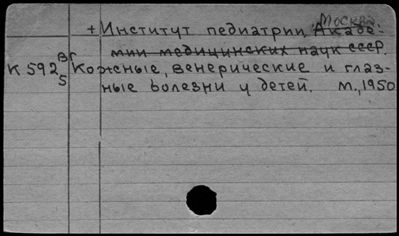 Москва
+ Институт педиатрии Акаде-
мии медицинских наук СССР.
Вг
К 592 Кожные, венерические и глаз-
5 ные болезни у детей. М., 1950